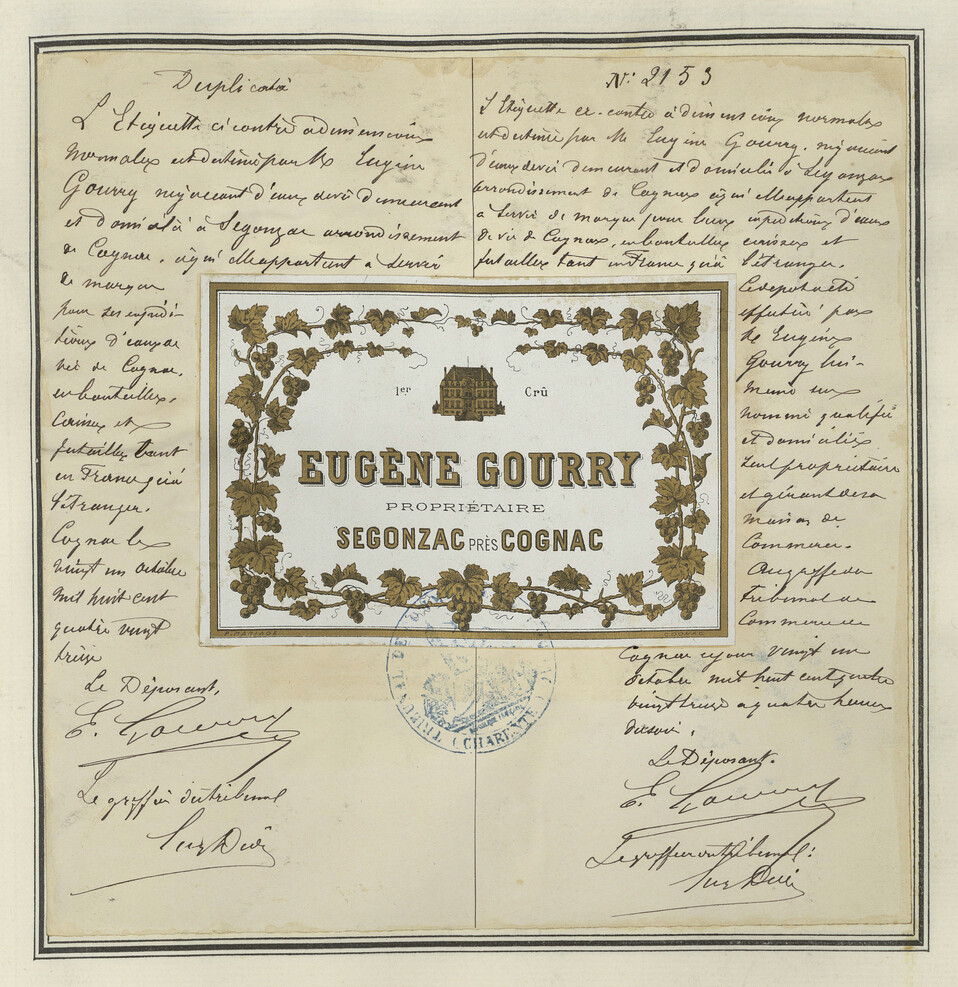 Duplicata
L'Etiquette ci contre à dimensions
normales est destinée par M Eugène
Gourry négociant d'eaux de vie demeurant
et domicilié à Segonzac arrondissement
de Cognac, à qui elle appartient a servir
de marque
pour ses expédi-
tions d'eaux de
vie de Cognac,
en bouteilles,
caisses et
futailles tant
en France qu'à
l'étranger.
Cognac le
vingt un octobre
mil huit cent
quatre vingt
treize
Le Déposant,
E. Gourry
Le greffier du tribunal
N: 2153
L'Etiquette ci-contre à dimensions normales
est destinée par M. Eugène Gourry, négociant
d'eaux de vie demeurant et domicilié à Segonzac
arrondissement de Cognac à qui elle appartient
a servir de marque pour leurs expéditions d'eaux
de vie de Cognac, en bouteilles caisses et
futailles tant en France qu'à l'étranger.
Ce dépot a été
effectué par
M Eugène
Gourry lui-
même sus
nommé qualifié
et domicilié
seul propriétaire
et gérant de sa
maison de
Commerce.
Au greffe du
Tribunal de
Commerce de
Cognac ce jour vingt un
octobre mil huit cent quatre
vingt treize à quatre heures
du soir.
Le Déposant.
E. Gourry
Le greffier du tribunal:
1er Crû
EUGÈNE GOURRY
PROPRIÉTAIRE
SEGONZAC PRÈS COGNAC
COGNAC
TRIBUNAL DE
(CHARENTE)